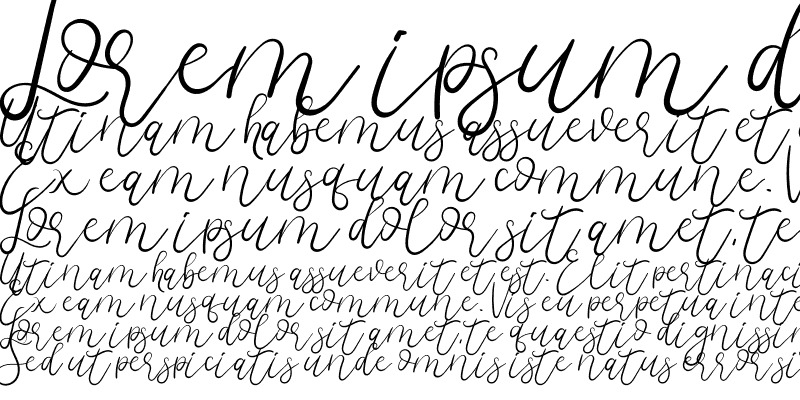 Lorem ipsum d
Utinam habemus assueverit et
Ex eam nusquam commune. V
Lorem ipsum dolor sit amet, te
Utinam habemus assueverit et est. Elit pertinaci
Ex eam nusquam commune. Vis eu perpetua inte
Lorem ipsum dolor sit amet, te quaestio dignissim
Sed ut perspiciatis unde omnis iste natus error si